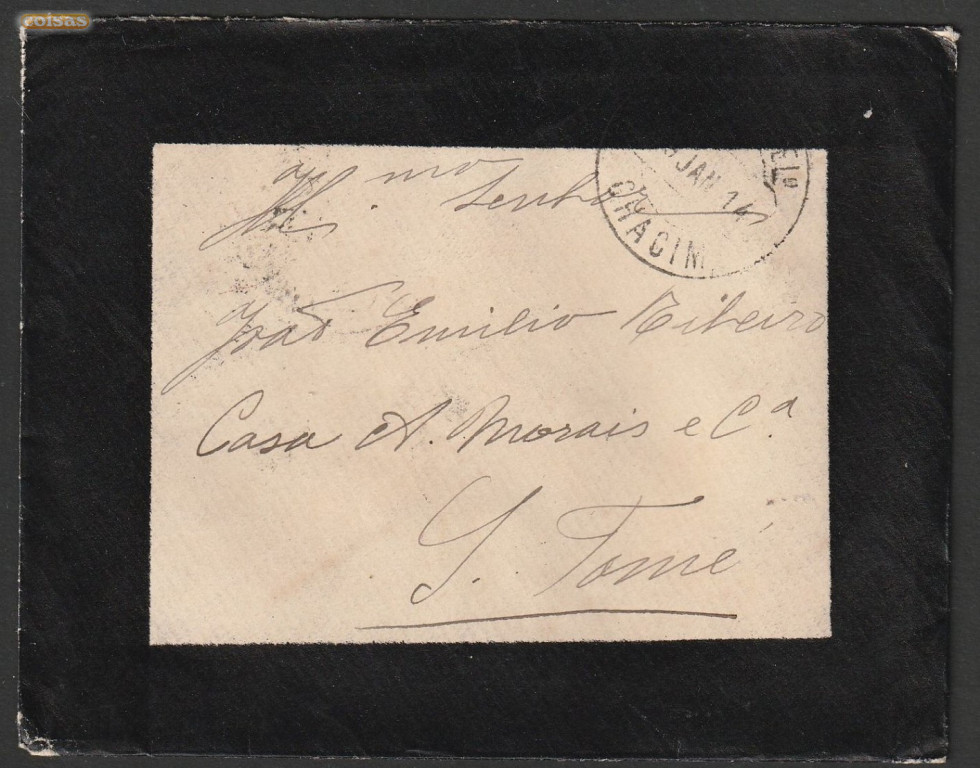 coisas
Ill.mo Senhor
JAN 14
CHACIM
João Emilio Ribeiro
Casa A. Morais e C.a
S. Tomé